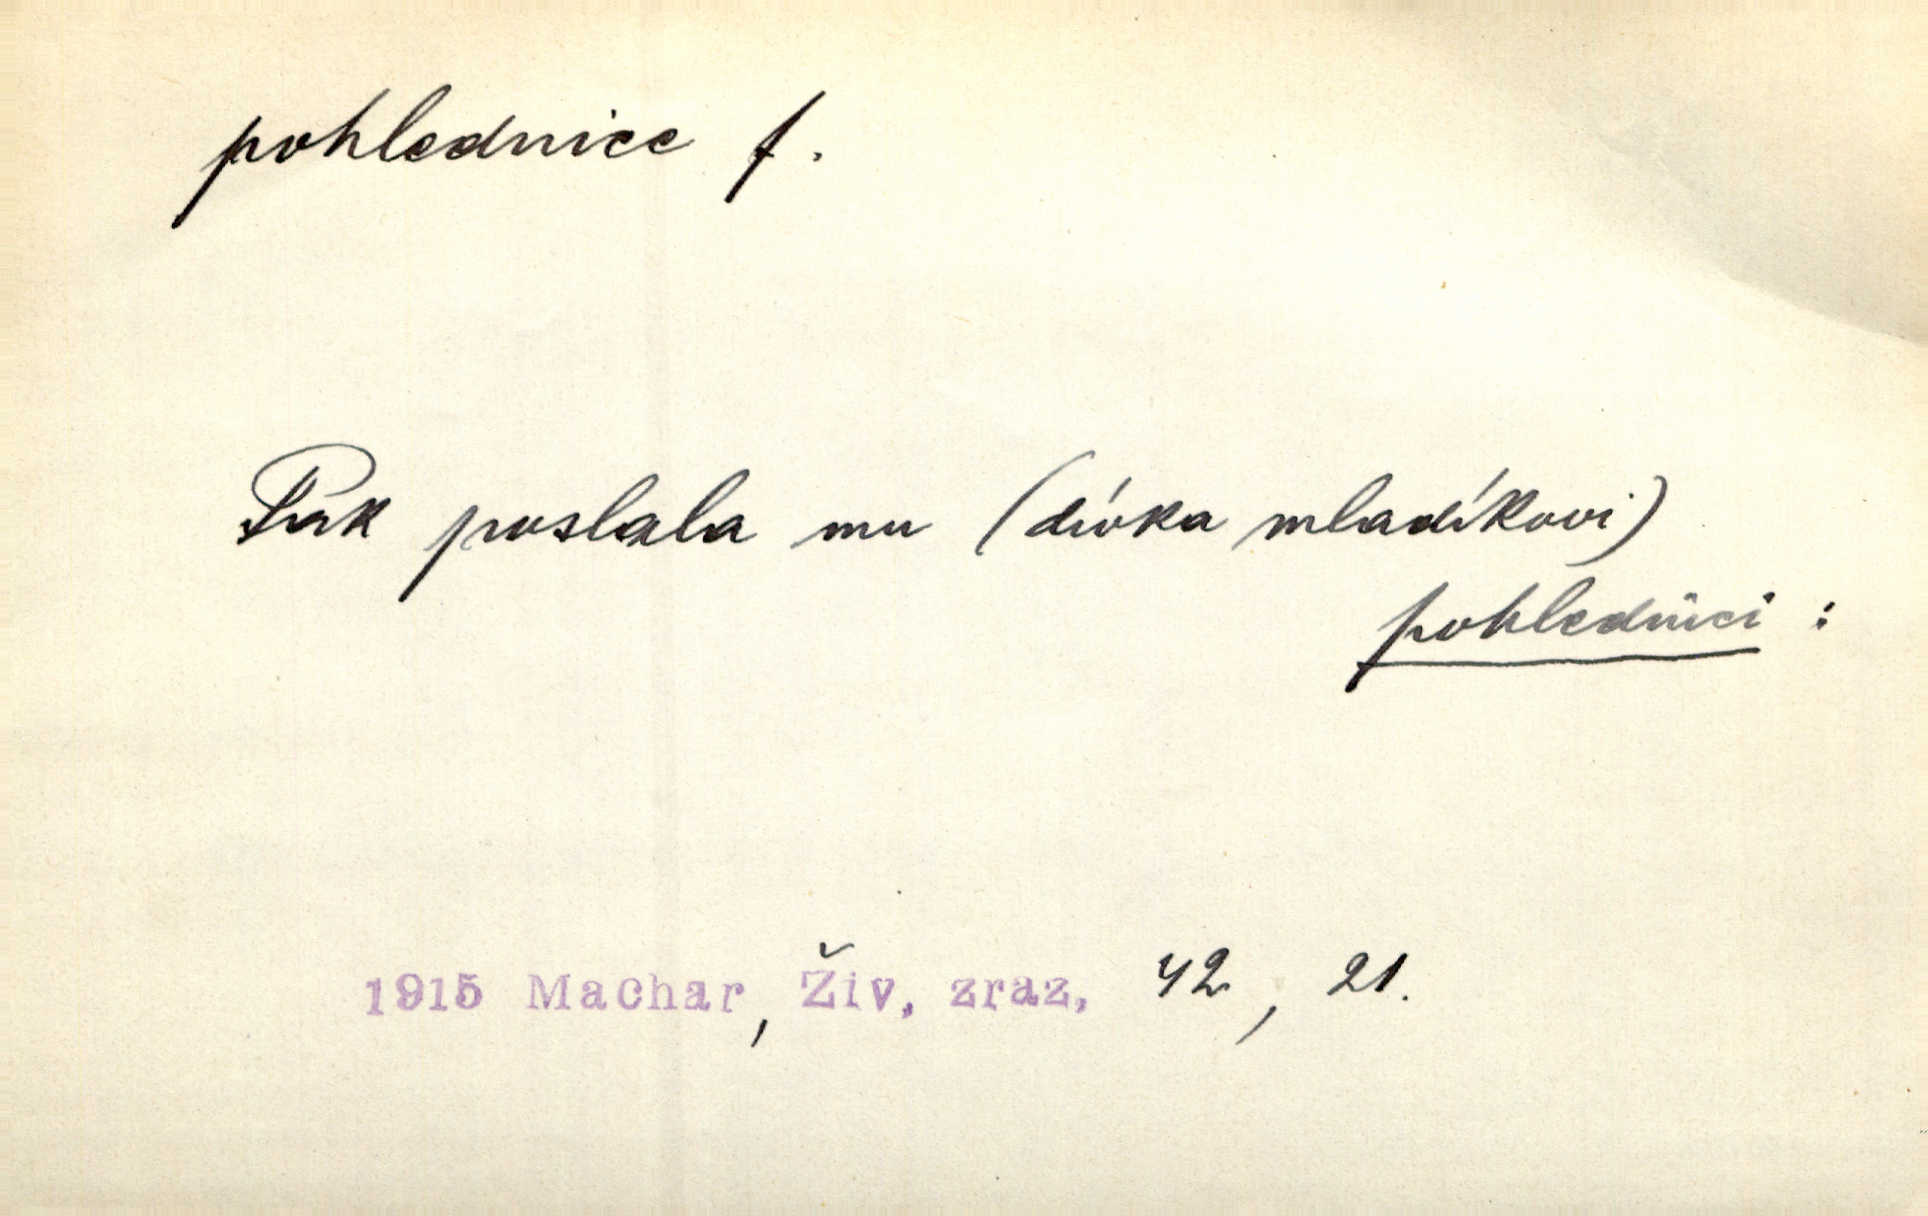 pohlednice f.
Pak poslala mu (dívka mladíkovi)
pohlednici :
1915 Machar, Živ. zraz, 42, 21.